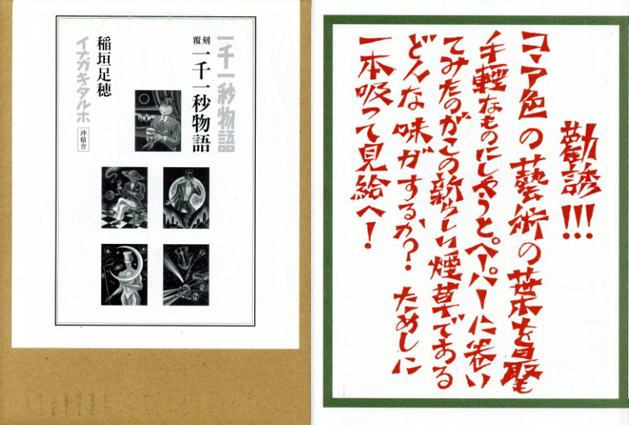 一千一秒物語
覆刻
一千一秒物語
稲垣足穂
イナガキタルホ
沖積舎
勸誘!!!
ココア色の藝術の葉を最も
手輕なものにしやうと。ペーパーに巻い
てみたのがこの新らしい煙草である
どんな味がするか? ためしに
一本吸って見給へ!